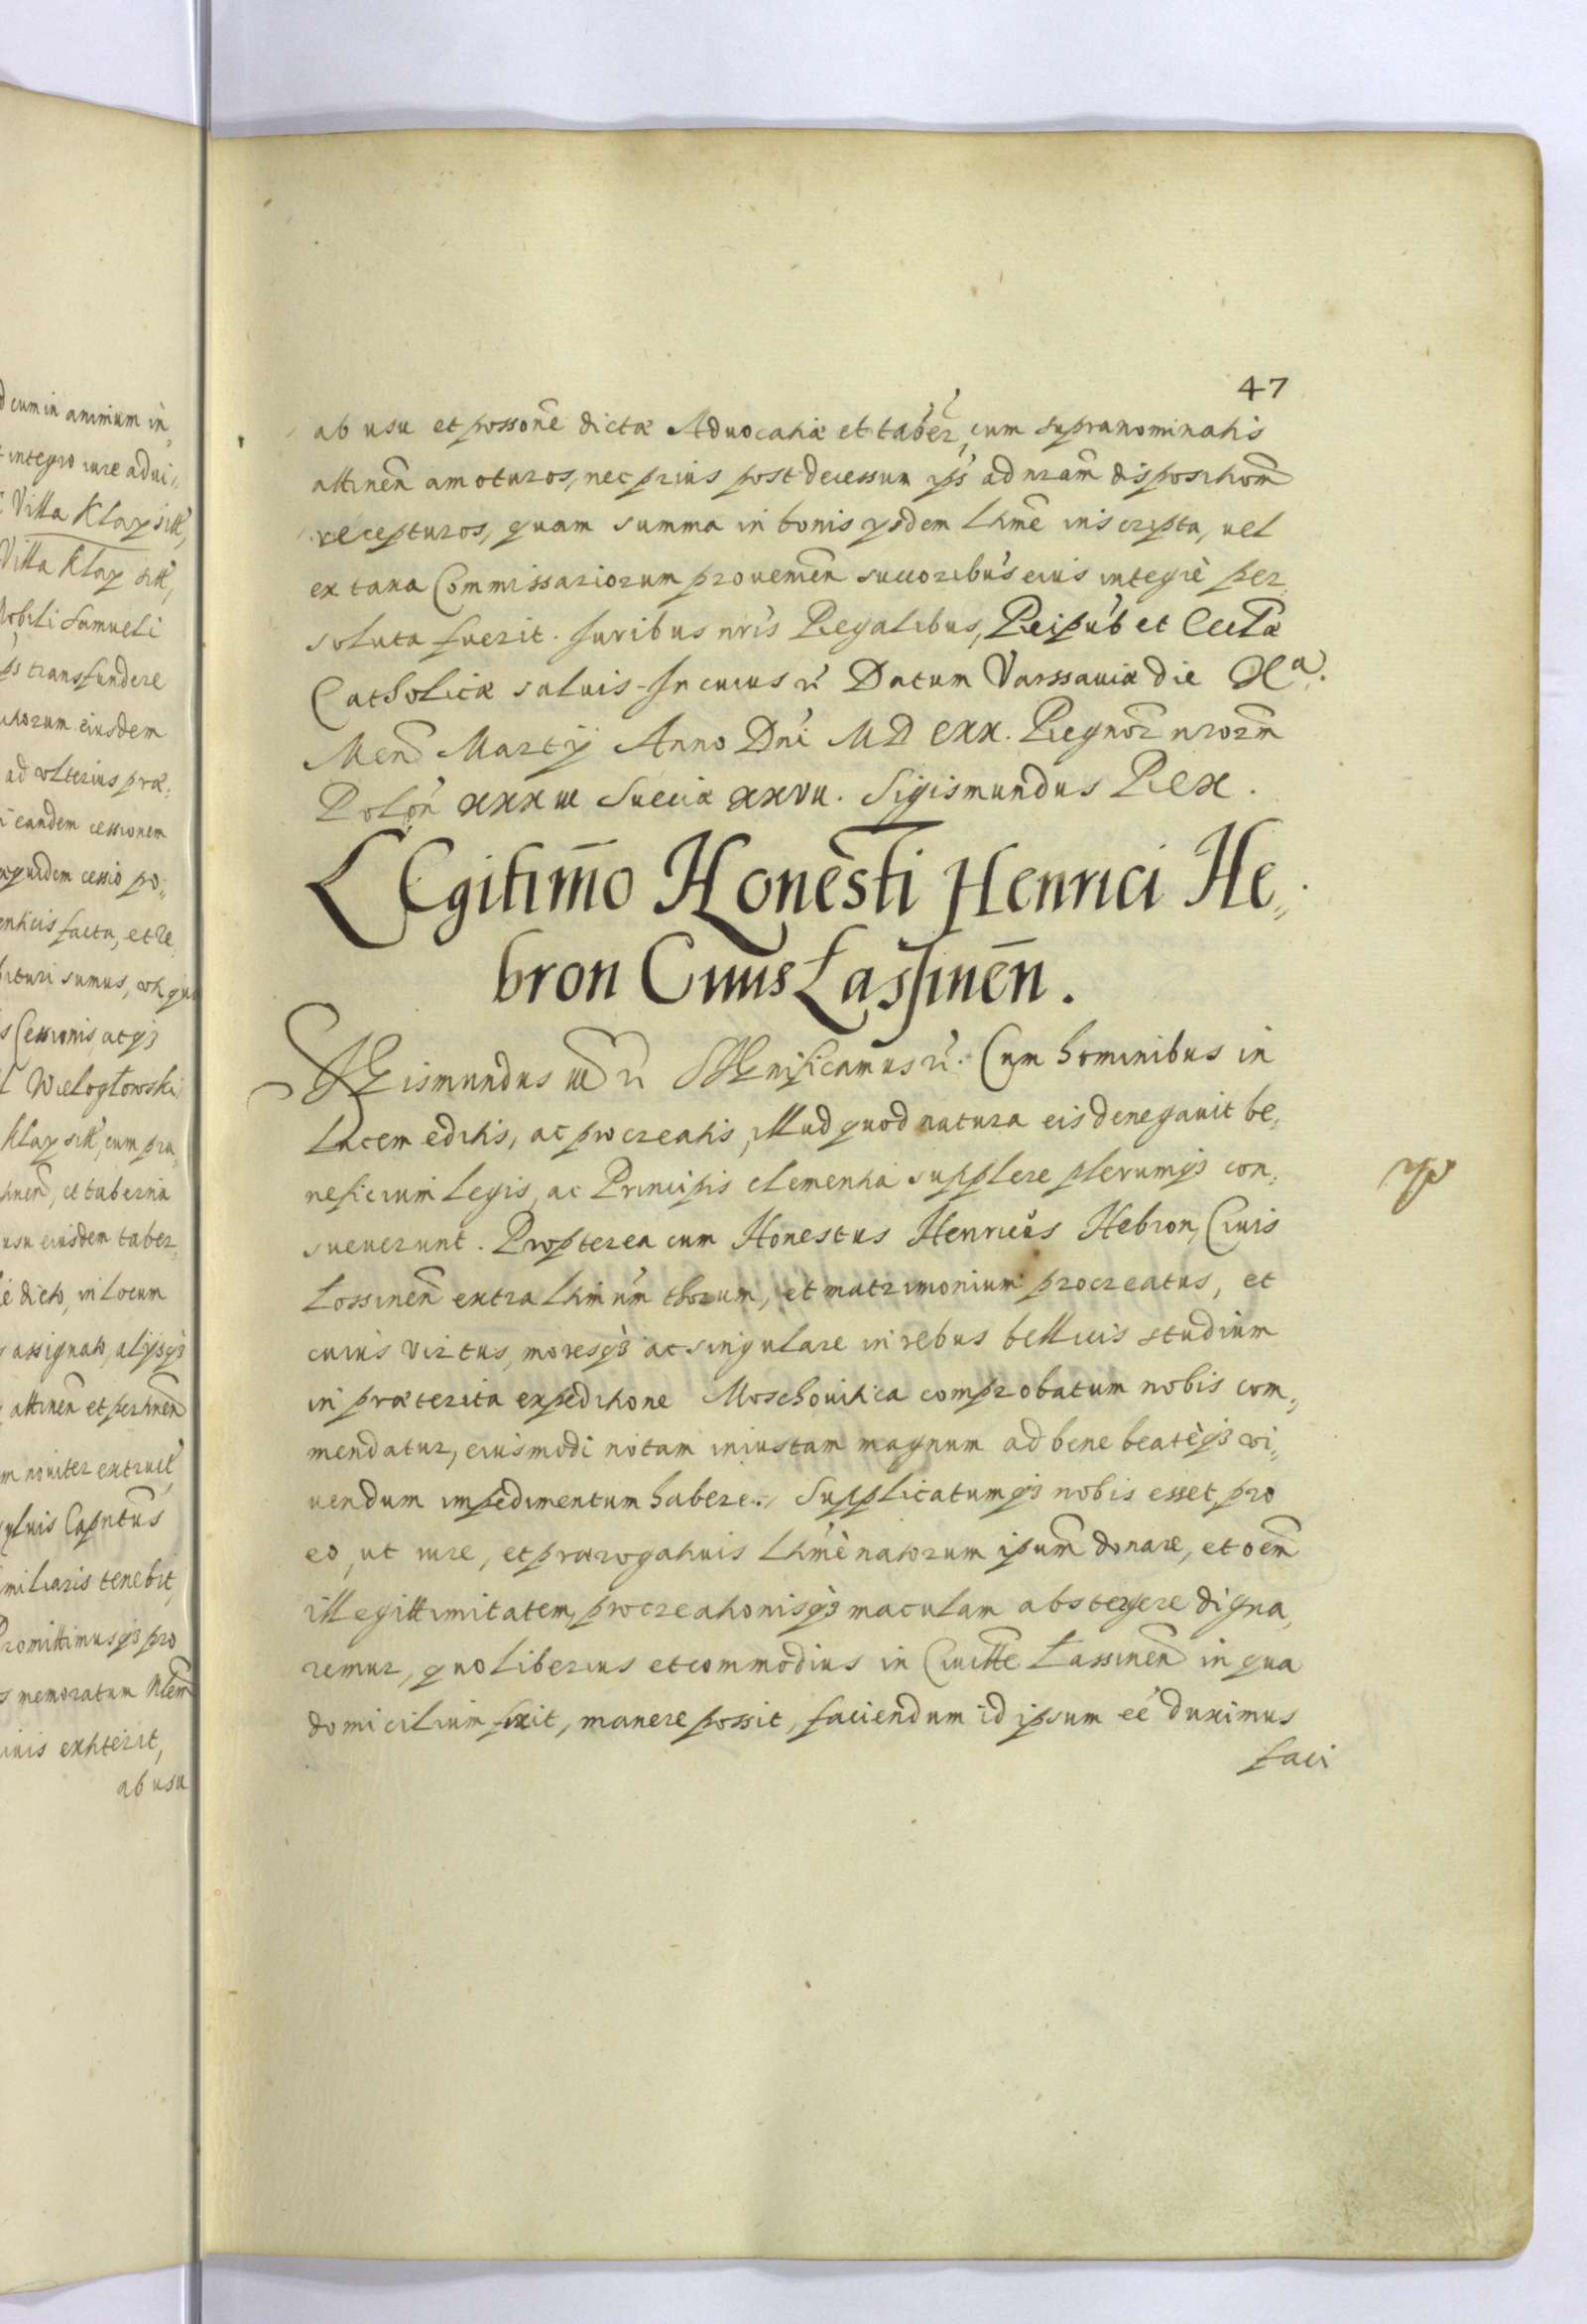 d cum in animum in„
integro iure adui„
Villa Klay sitt,
Villa Klay sitt,
Nobili Samueli
ps transfundere
ad vlterius præ„
eandem cessionem
quidem cessio po„
facta, et re„
bituri sumus, vti
Cessionis, atqз
Wielogłowski
Klay sitt, cum
et taberna
usu eiusdem taber„
dicto, in locum
assignato, alijsqз
attinen̄ et pertinen̄
m nouiter extruct
saluis Capnt̄us
miliaris tenebit,
Promittimusqз pro
s memoratum Nlem̄
extiterit,
ab usu
47
ab usu et posson̄e dictæ Aduocatiæ et taber̄, cum supranominatis
attinen̄ amoturos, nec prius post decessum ips̄ ad nram̄ dispositiom̄
recepturos, quam summa in bonis ysdem lhme inscripta, vel
ex taxa Commissariorum prouemen̄ succorib́us eius integrè per„
soluta fuerit. Juribus nrís Regalibus, Reipúb et Eccl̄æ
Catholicæ saluis. In cuius rí Datum Varssauiæ die Xa.
Men̄ Martij Anno Dnī MD CXX. Regnor̄ nrorm̄
Polon̄ XXXIII Sueciæ XXVII. Sigismundus Rex.
LEgitim̄o Honesti Henrici He„
bron Ciuis Lassinen̄.
SIgismundus III D rí SIgnificamus rí. Cum hominibus in
lucem editis, ac procreatis, illud quod natura eis denegauit be„
neficium legis, ac Principis clementia supplere plerumqз con„
sueuerunt. Propterea cum Honestus Henricus Hebron, Ciuis
Lossinen̄ extra lhmum thorum, et matrimonium procreatus, et
cuius virtus, moresqз ac singulare in rebus bellicis studium
in præterita expeditione Moschouitica comprobatum nobis com„
mendatur, eiusmodi notam iniustam magnum ad bene beatèqз vi„
uendum impedimentum habere. Supplicatumqз nobis esset, pro
eo, ut iure, et prærogatiuis lhmè natorum ipsum̄ donare, et oem̄
illegittimitatem, procreationisqз maculam abstergere digna„
remur, quo liberius et commodius in Ciuitte Lassinen̄ in qua
domicilium fixit, manere possit, faciendum id ipsum eé duximus
faci